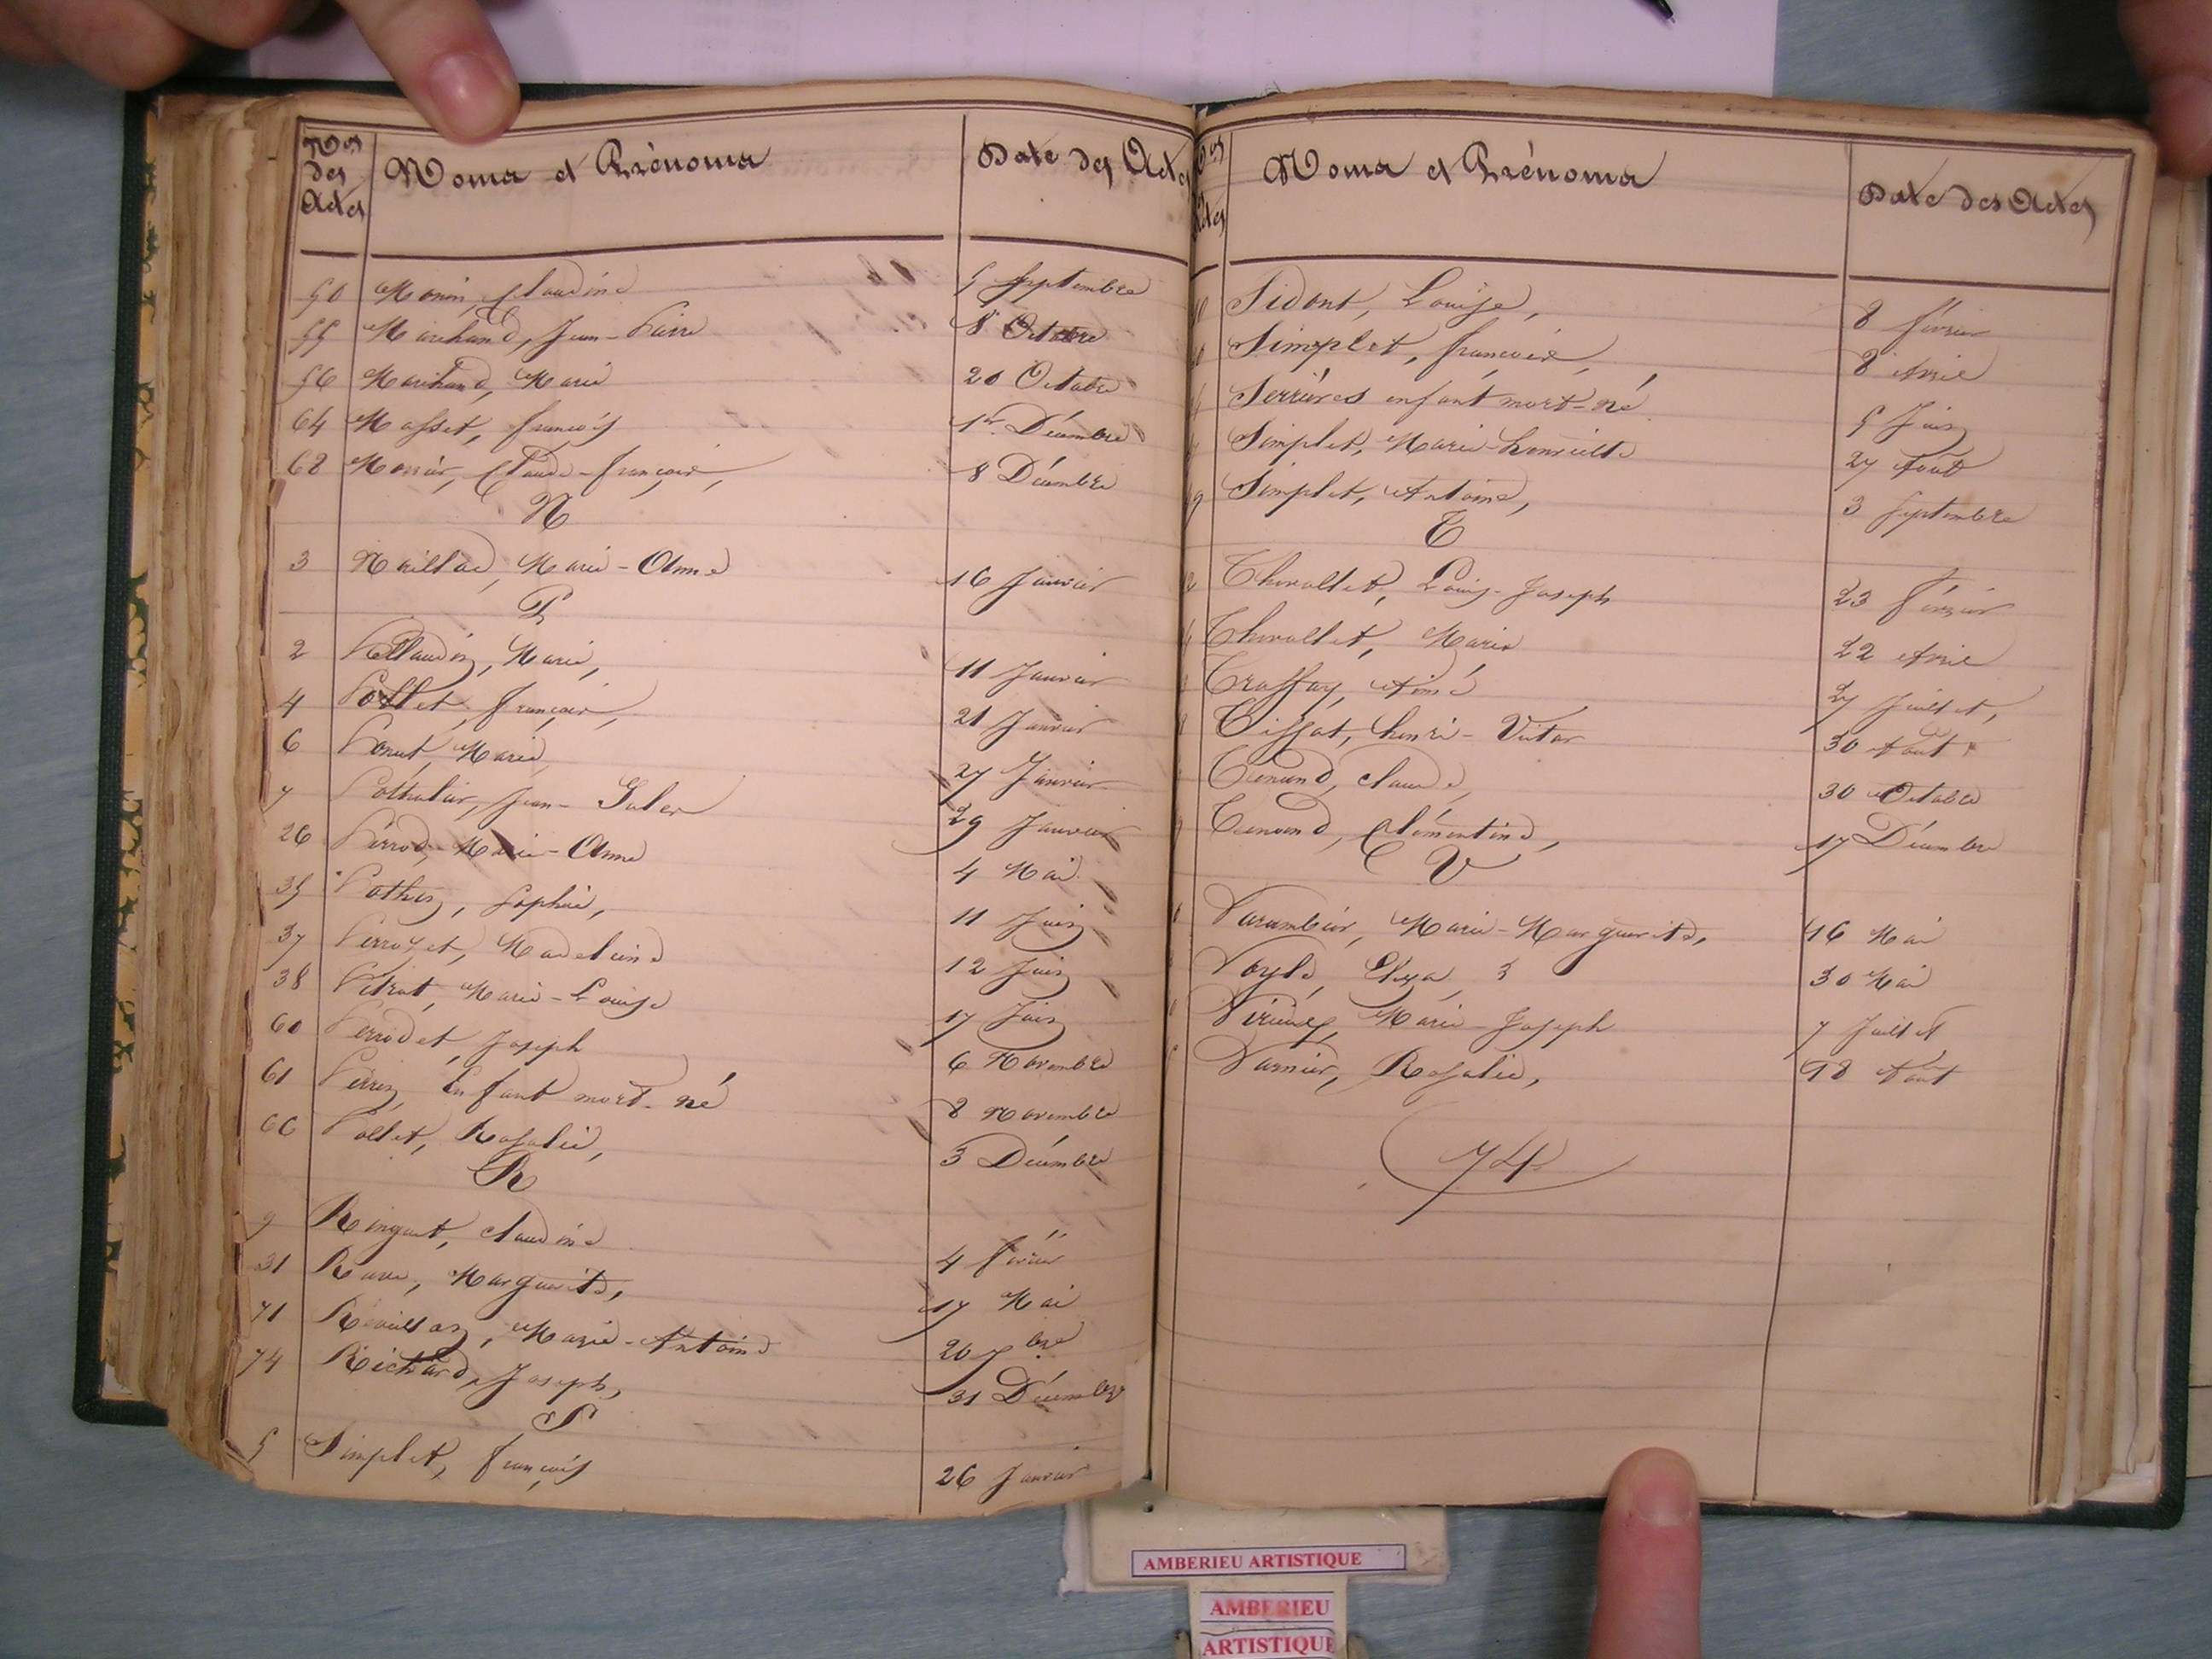 Nos des Actes Noms et Prénoms Date des Actes
50 Monin, Claudine 5 Septembre
55 Marchand, Jean-Pierre 8 Octobre
56 Marchand, Marie 20 Octobre
64 Masset, françois 1er Décembre
68 Monier, Claude-françois, 8 Décembre
N
3 Marie-Anne 16 Janvier
P
2 Marie, 11 Janvier
4 Pollet, françois, 21 Janvier
6 Marie 27 Janvier
7 Jean- 29 Janvier
26 Perrod, Marie-Anne 4 Mai
35 Pothin, Sophie, 11 Juin
37 Perrozet, Madeleine 12 Juin
38 Pétrat, Marie-Louise 17 Juin
60 Perrodet, Joseph 6 Novembre
61 Perrin, Enfant mort-né 8 Novembre
66 Pollet, Rosalie, 3 Décembre
R
9 Ringuet, Claudine 4 Février
31 Marguerite, 17 Mai
71 Révillon, Marie-Antoine 20 Xbre
74 Richard, Joseph, 31 Décembre
S
5 Simplet, françois 26 Janvier
Noms et Prénoms Date des Actes
Sidont, Louise, 8 février
Simplet, françois, 8 Avril
Serrières enfant mort-né 5 Juin
Simplet, Marie-henriette 27 Août
Simplet, Antoine, 3 Septembre
T
Thevollet, Louis-Joseph 23 février
Thevollet, Marie 22 Avril
Aimé 27 Juillet,
Tissot, henri-Victor 30 Août
Tenand, Claude, 30 Octobre
Tenand, Clémentine, 17 Décembre
V
Varambier, Marie-Marguerite, 16 Mai
30 Mai
Marie-Joseph 7 Juillet
Varnier, Rosalie, 18 Août
74
AMBERIEU ARTISTIQUE
AMBERIEU
ARTISTIQUE